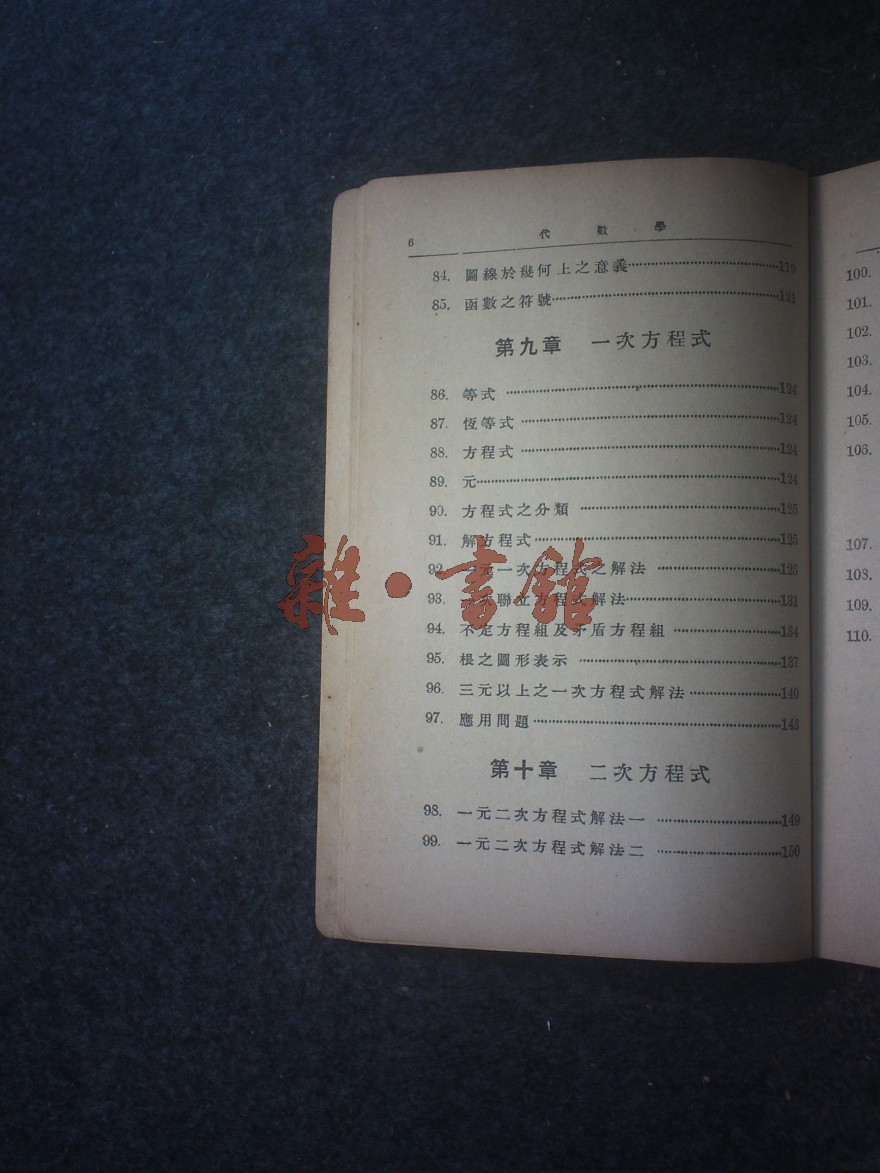 6 代數學
84. 圖線於幾何上之意義 119
85. 函數之符號 121
第九章 一次方程式
86. 等式 124
87. 恆等式 124
88. 方程式 124
89. 元 124
90. 方程式之分類 125
91. 解方程式 125
92. 一元一次方程式之解法 125
93. 聯立方程式解法 131
94. 不定方程組及矛盾方程組 134
95. 根之圖形表示 137
96. 三元以上之一次方程式解法 140
97. 應用問題 143
第十章 二次方程式
98. 一元二次方程式解法一 149
99. 一元二次方程式解法二 150
雜·書館
100.
101.
102.
103.
104.
105.
106.
107.
108.
109.
110.